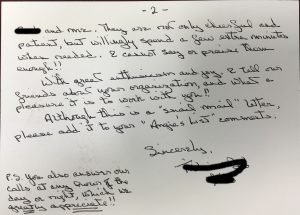 - 2 -
and me. They are not only cheerful and
patient, but willingly spend a few extra minutes
when needed. I cannot say or praise them
enough!!
With great enthusiasm and joy, I tell our
friends about your organization, and what a
pleasure it is to work with you!!
Although this is a "snail mail" letter,
please add it to your "Angie's List" comments.
Sincerely,
P.S. You also answer our
calls at any hour of the
day or night, which we
greatly appreciate!!